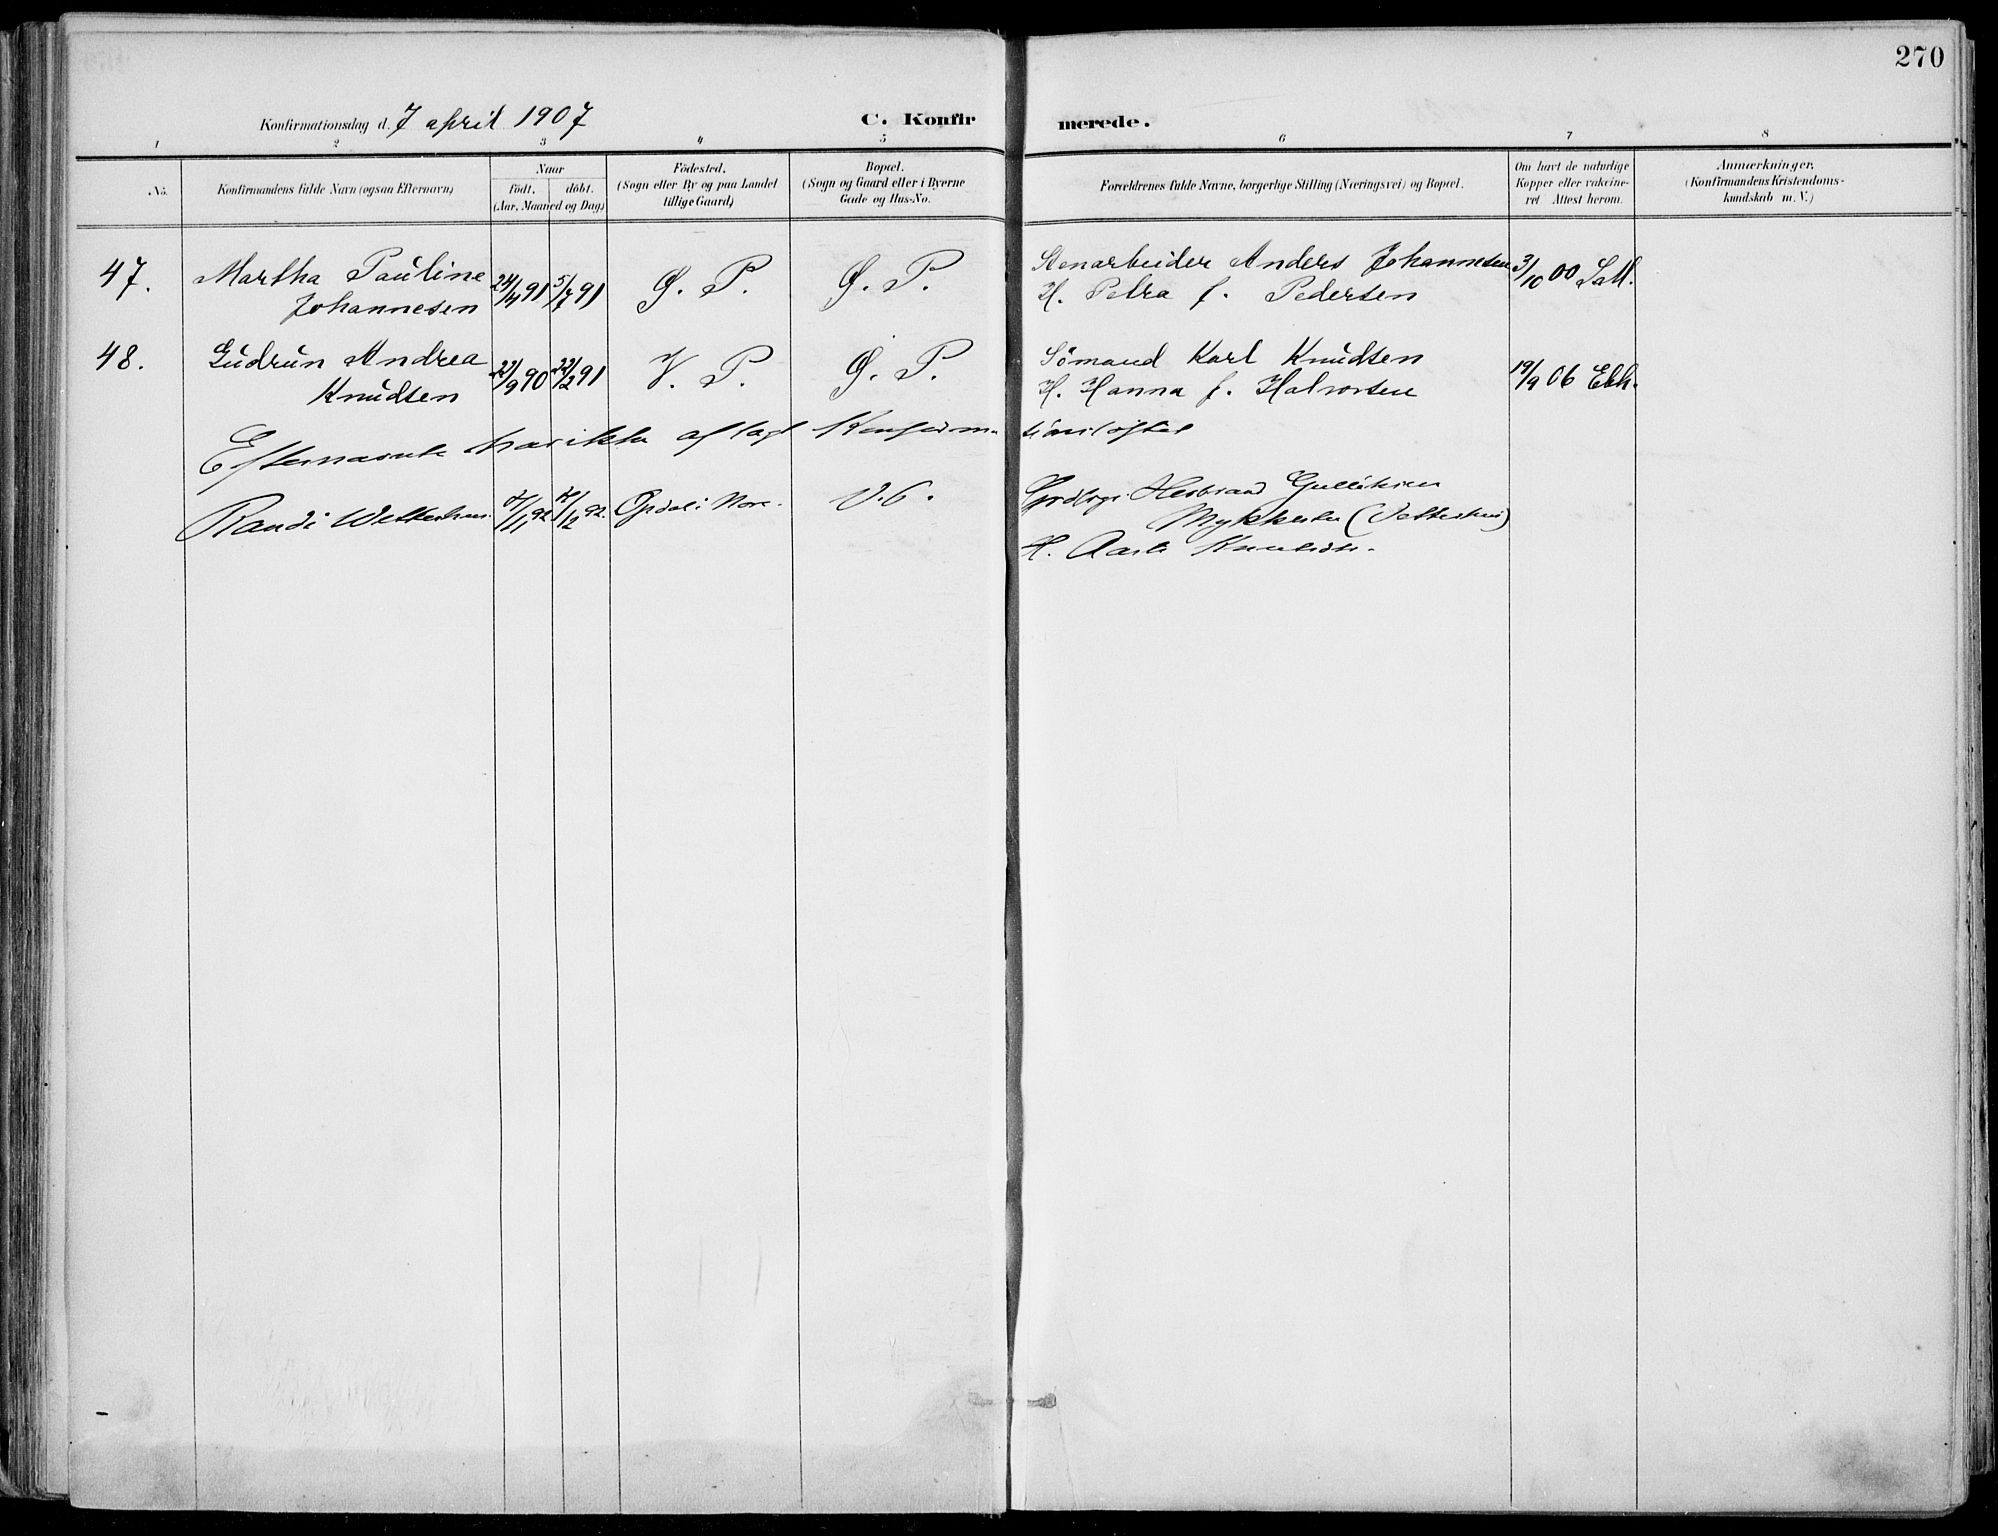 270
Konfirmationsdag d. 7 april 1907
C. Konfirmerede.
1 2 3 4 5 6 7 8
No.
Konfirmandens fulde Navn (ogsaa Efternavn)
Naar
födt. döbt.
(Aar, Maaned og Dag)
Födested.
(Sogn eller By og paa Landet
tillige Gaard)
Bopæl.
(Sogn og Gaard eller i Byerne
Gade og Hus-No.
Forældrenes fulde Navne, borgerlige Stilling (Næringsvei) og Bopæl.
Om havt de naturlige
Kopper eller vakcine-
ret Attest herom.
Anmærkninger.
(Konfirmandens Kristendoms-
kundskab m. V.)
47. Martha Pauline 24/4 91 5/7 91 Ø. P. Ø. P. Stenarbeider Anders Johannesen 3/10 00
Johannesen H. Petra f. Pedersen
48. Gudrun Andrea 22/9 90 22/2 91 V. P. Ø. P. Sömand Karl Knudsen 19/9 06
Knudsen H. Hanna f. Halvorsen
Efternævnte har ikke aflagt Konfirmationsløftet
Randi Wetteshus /11 92 /12 92 Opdal i Nore Gulliksen
Mykkestu (Vetteshus)
H.